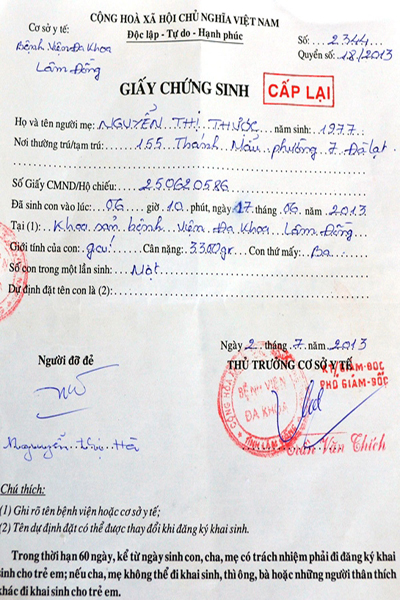 CỘNG HOÀ XÃ HỘI CHỦ NGHĨA VIỆT NAM
Độc lập - Tự do - Hạnh phúc
Cơ sở y tế:
Bệnh Viện Đa Khoa
Lâm Đồng
Số: 2344
Quyển số: 18/2013
GIẤY CHỨNG SINH
CẤP LẠI
Họ và tên người mẹ: NGUYỄN THỊ THƯỚC năm sinh: 1977
Nơi thường trú/tạm trú: 155 Thánh Mẫu phường 7 Đà Lạt
Số Giấy CMND/Hộ chiếu: 250620586
Đã sinh con vào lúc: 06 giờ 10 phút, ngày 17 tháng 06 năm 2013
Tại (1): Khoa sản bệnh viện Đa Khoa Lâm Đồng
Giới tính của con: gái Cân nặng: 3300gr Con thứ mấy: Ba
Số con trong một lần sinh: Một
Dự định đặt tên con là (2):
Ngày 2 tháng 7 năm 2013
Người đỡ đẻ
THỦ TRƯỞNG CƠ SỞ Y TẾ
GIÁM ĐỐC
PHÓ GIÁM ĐỐC
BỆNH VIỆN
ĐA KHOA
Nguyễn Thị Hà
Trần Văn Thích
Chú thích:
(1) Ghi rõ tên bệnh viện hoặc cơ sở y tế;
(2) Tên dự định đặt có thể được thay đổi khi đăng ký khai sinh.
Trong thời hạn 60 ngày, kể từ ngày sinh con, cha, mẹ có trách nhiệm phải đi đăng ký khai
sinh cho trẻ em; nếu cha, mẹ không thể đi khai sinh, thì ông, bà hoặc những người thân thích
khác đi khai sinh cho trẻ em.